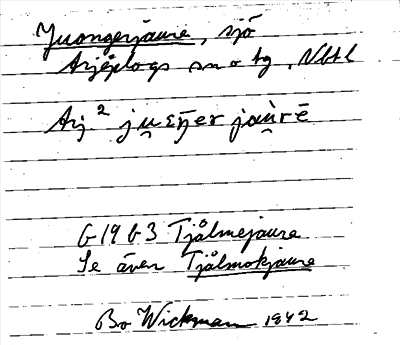 Juongerjaure, sjö
Arjeplogs sn o tg, Nbtl
Arj.² ju̯εŋ̄er jau̯rē
G 19 G3 Tjålmejaure
Se även Tjålmokjaure
Bo Wickman 1942